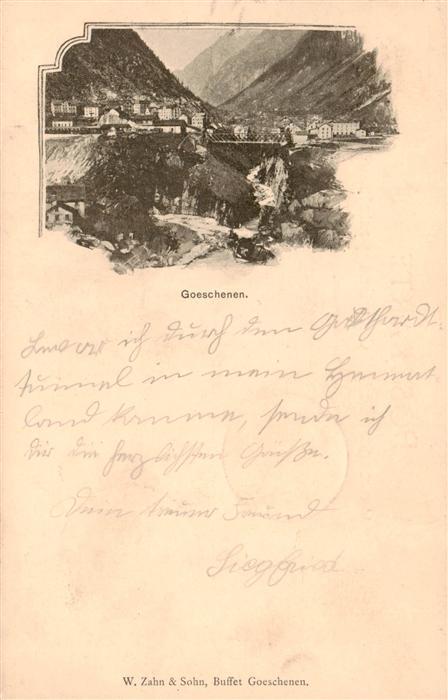 Goeschenen.
Bevor ich durch den Gotthardt-
tunnel in mein Heimat-
land komme, sende ich
Dir die herzlichsten Grüße.
Dein treuer Freund
Siegfried
W. Zahn & Sohn, Buffet Goeschenen.